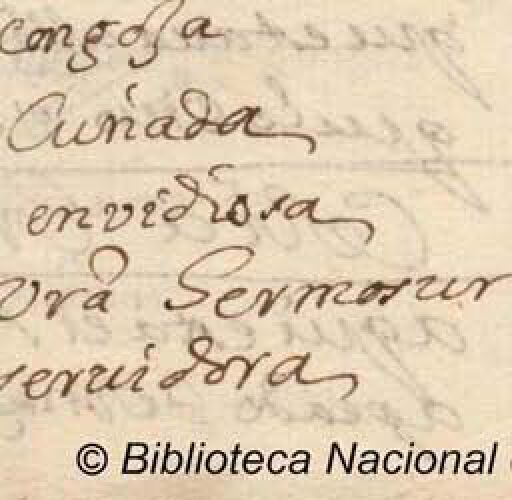 congoja
Cuñada
envidiosa
Vrã Sermosur
servidora
© Biblioteca Nacional